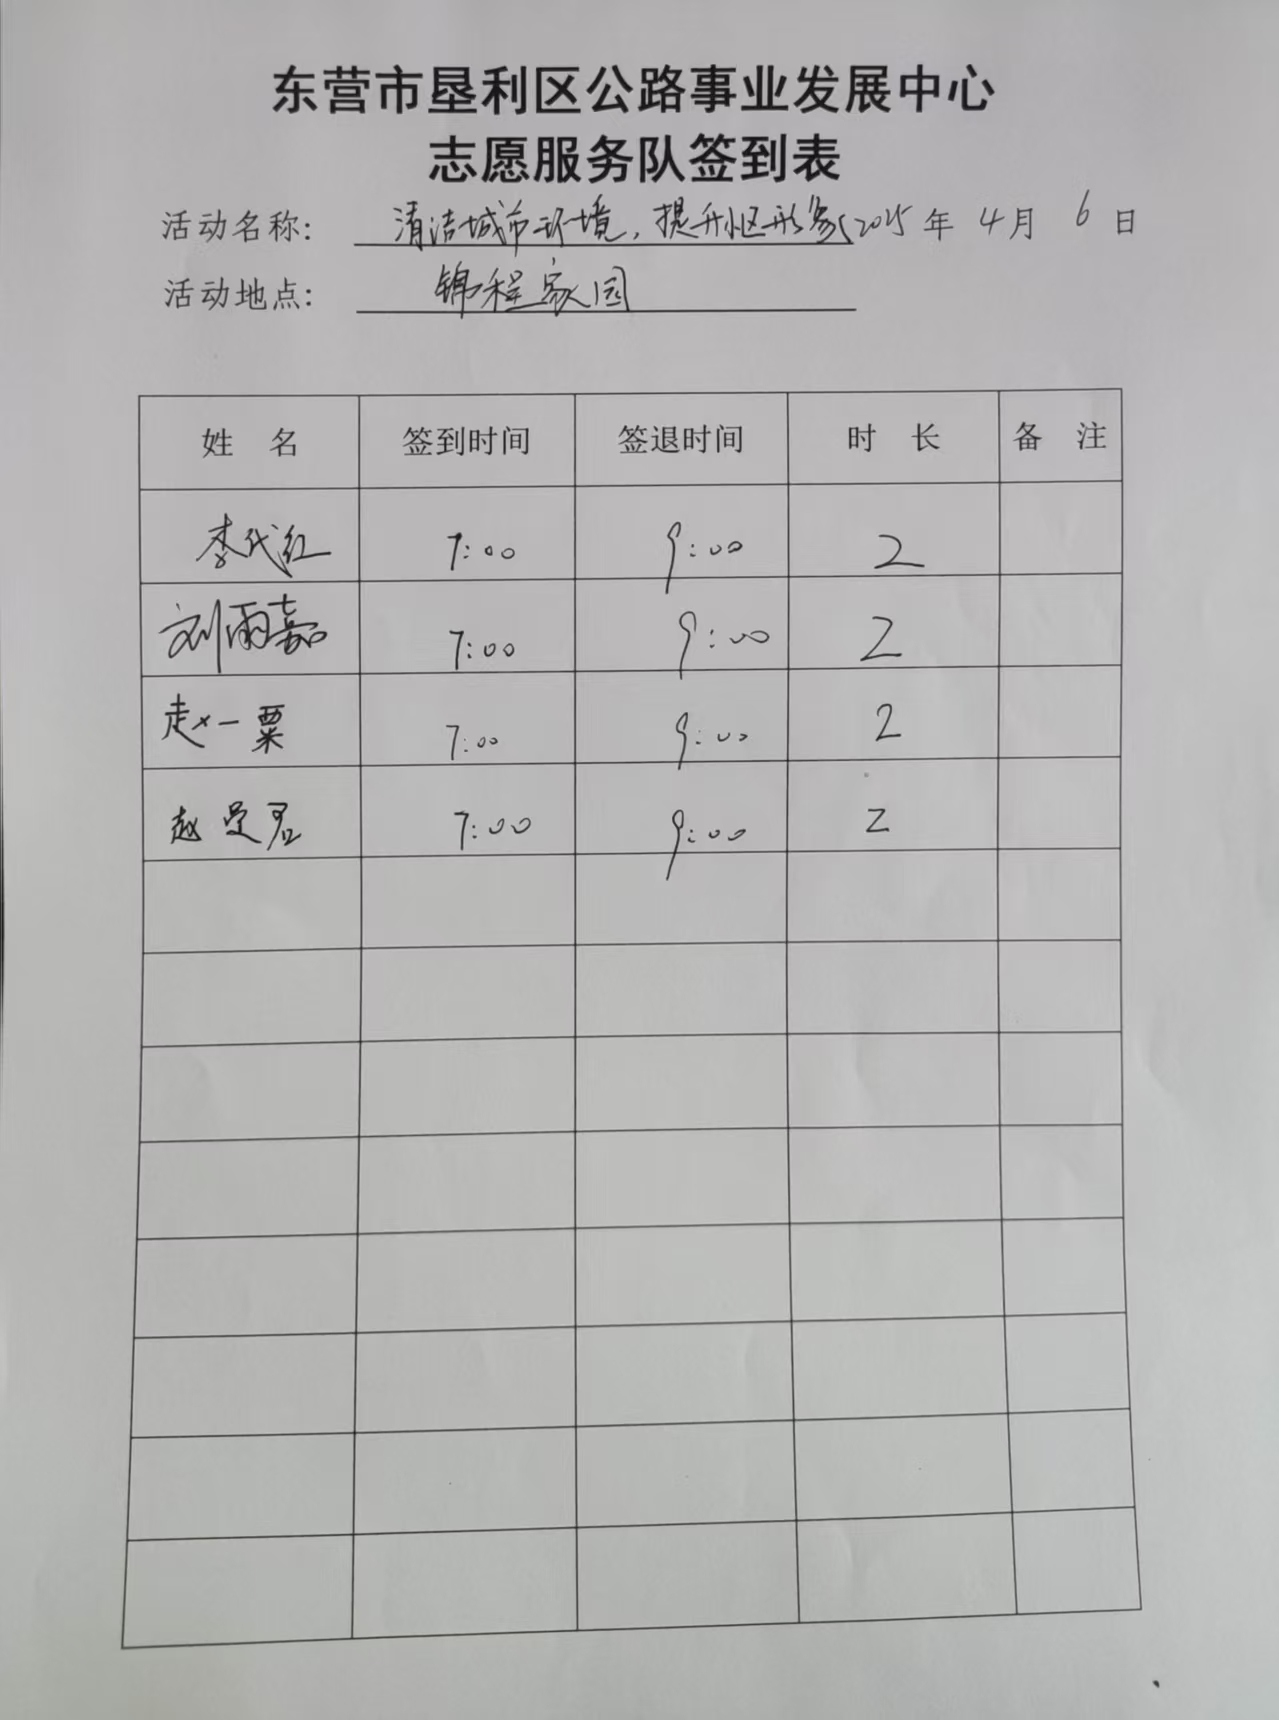 东营市垦利区公路事业发展中心
志愿服务队签到表
活动名称: 清洁城市环境,提升小区形象 2025年 4月 6日
活动地点: 锦程家园
姓 名 签到时间 签退时间 时 长 备 注
李代红 7:00 9:00 2
刘雨嘉 7:00 9:00 2
赵一粟 7:00 9:00 2
赵曼君 7:00 9:00 2